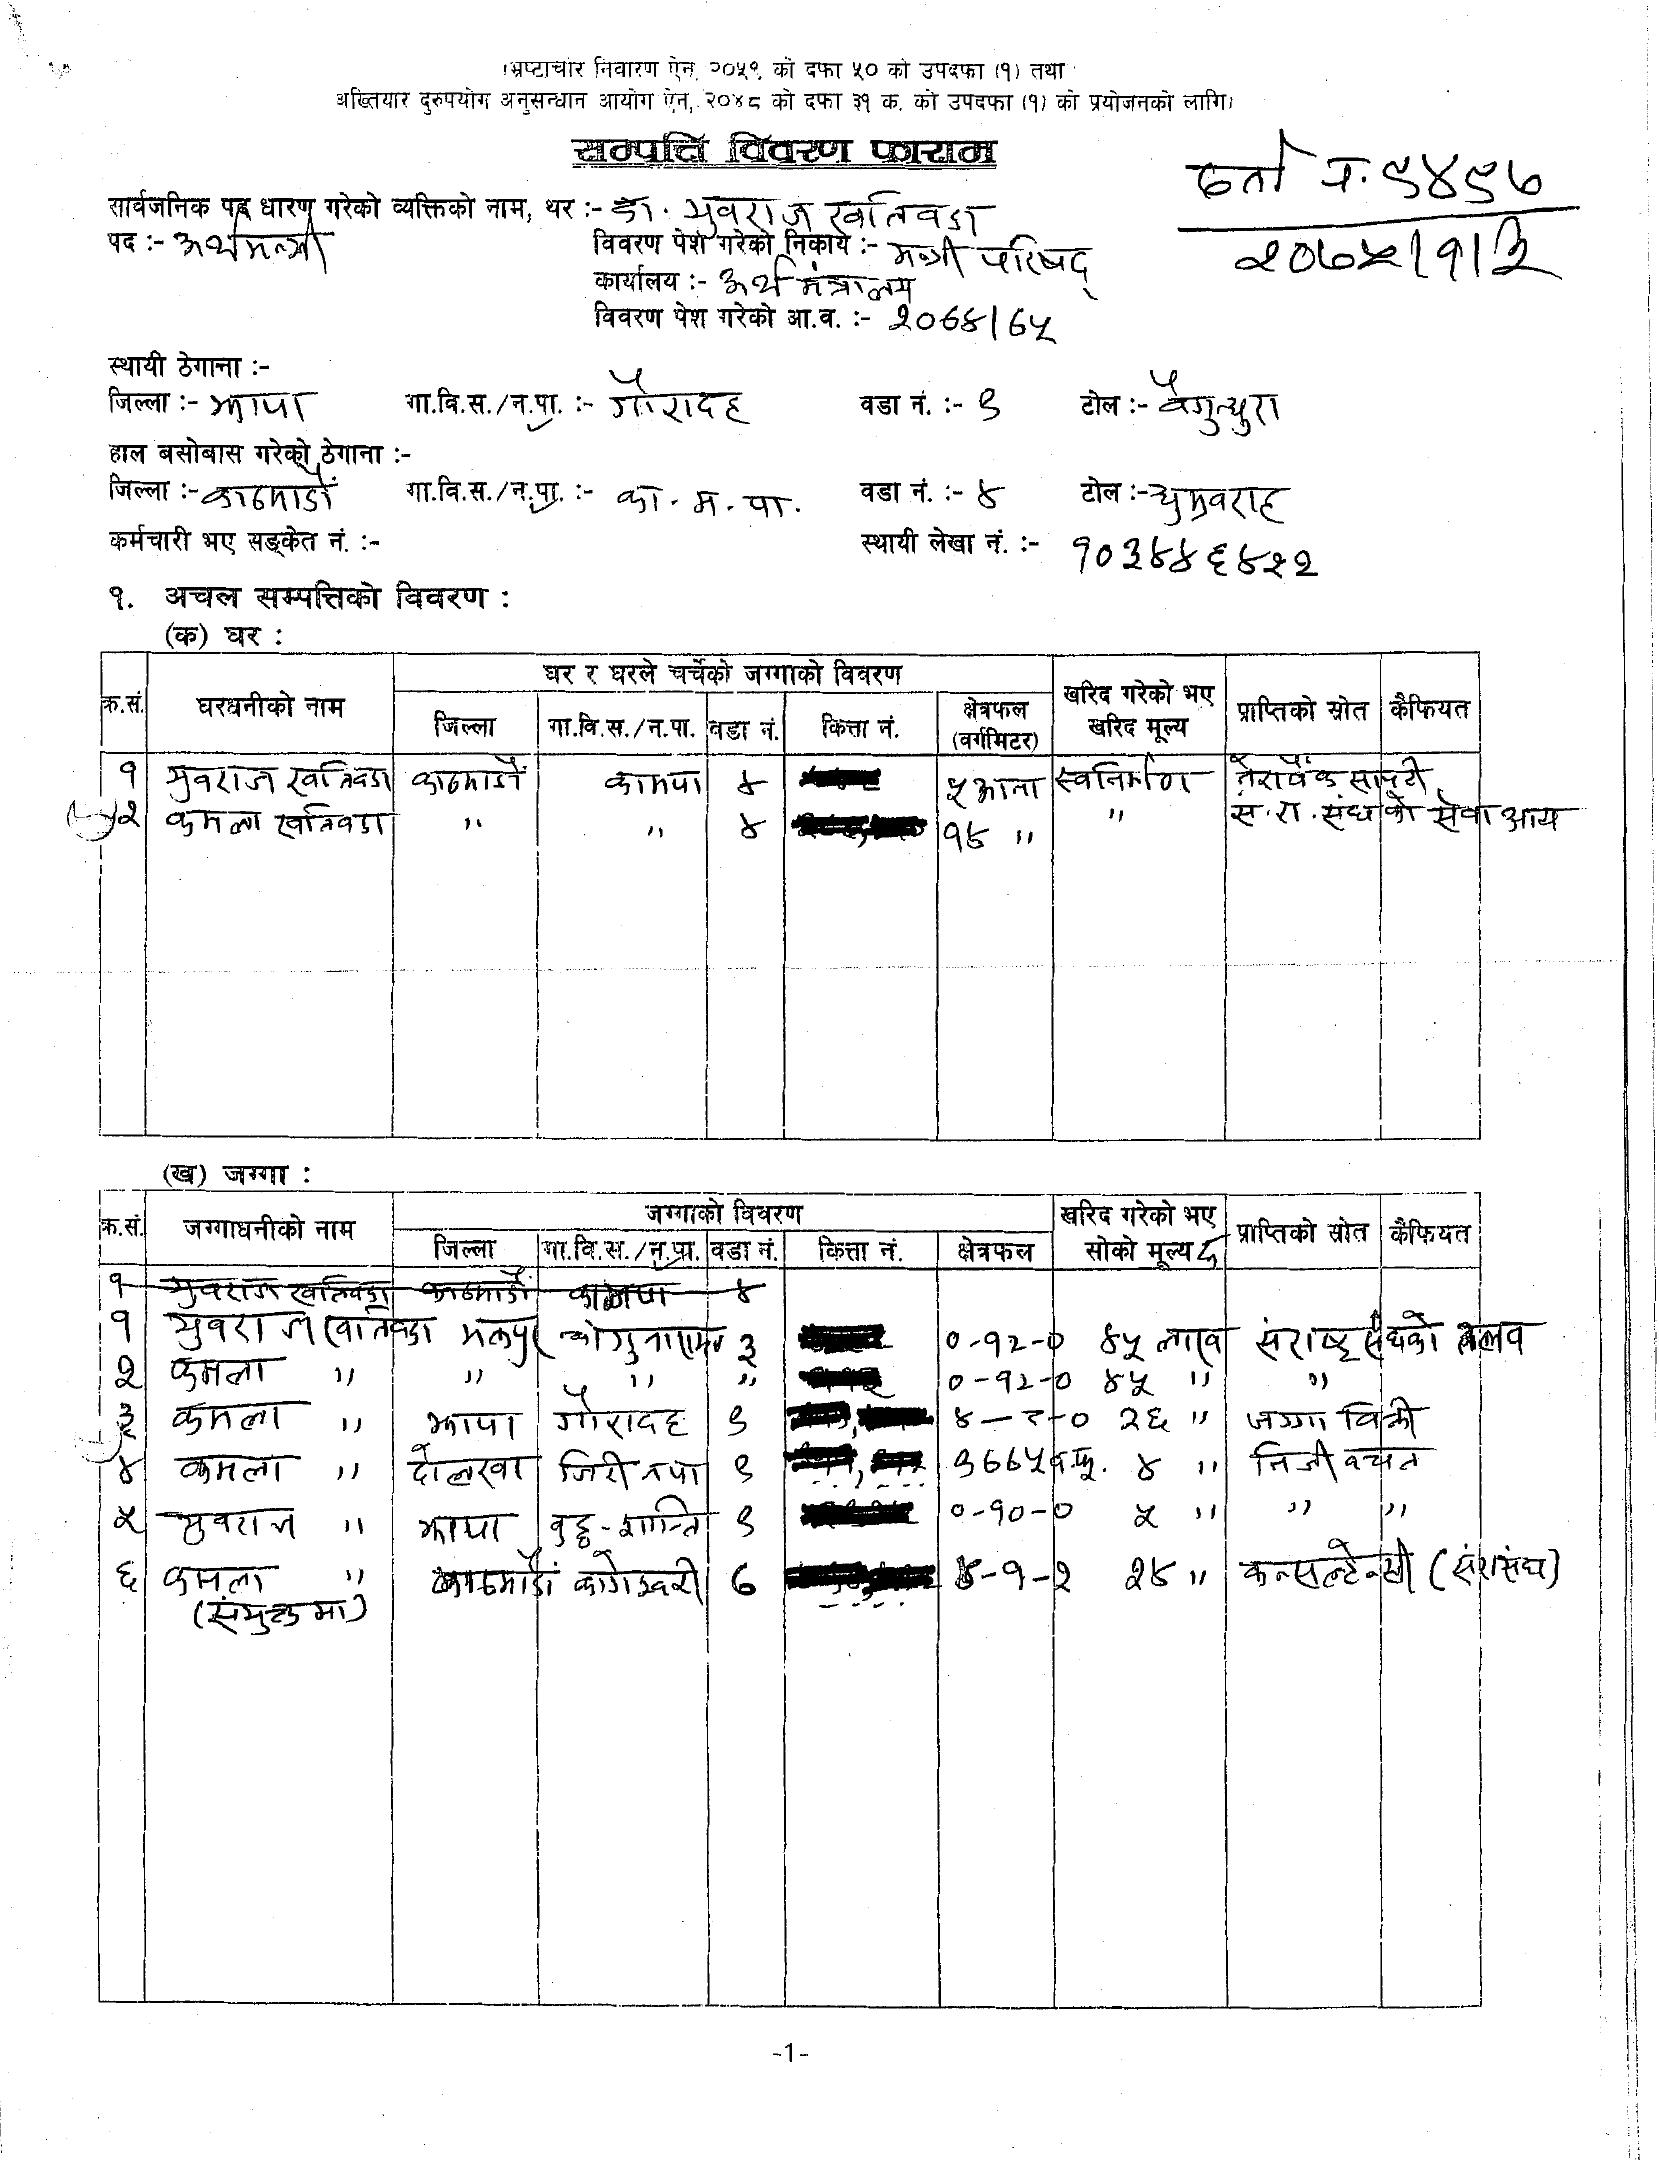 (भ्रष्टाचार निवारण ऐन, २०५९ को दफा ५० को उपदफा (१) तथा
अख्तियार दुरुपयोग अनुसन्धान आयोग ऐन, २०४८ को दफा ३१ क. को उपदफा (१) को प्रयोजनको लागि)
सम्पत्ति विवरण फाराम
दर्ता नं. ९४९७
२०७५।१।३
सार्वजनिक पद धारण गरेको व्यक्तिको नाम, थर :- डा. युवराज खतिवडा
पद :- अर्थमन्त्री विवरण पेश गरेको निकाय :- मन्त्री परिषद्
कार्यालय :- अर्थ मंत्रालय
विवरण पेश गरेको आ.व. :- २०७४।७५
स्थायी ठेगाना :-
जिल्ला :- झापा गा.वि.स./न.पा. :- गौरादह वडा नं. :- ९ टोल :-
हाल बसोबास गरेको ठेगाना :-
जिल्ला :- काठमाडौं गा.वि.स./न.पा. :- का.म.पा. वडा नं. :- ४ टोल :- धुम्रवराह
कर्मचारी भए सङ्केत नं. :- स्थायी लेखा नं. :-
१. अचल सम्पत्तिको विवरण :
(क) घर :
घर र घरले चर्चेको जग्गाको विवरण
क्र.सं. घरधनीको नाम जिल्ला गा.वि.स./न.पा. वडा नं. कित्ता नं. क्षेत्रफल (वर्गमिटर) खरिद गरेको भए खरिद मूल्य प्राप्तिको स्रोत कैफियत
१ युवराज खतिवडा काठमाडौं कामपा ४ ५ आना स्वनिर्माण सापटी
२ कमला खतिवडा " " ४ १४ " " सं.रा. संघको सेवा आय
(ख) जग्गा :
जग्गाको विवरण
क्र.सं. जग्गाधनीको नाम जिल्ला गा.वि.स./न.पा. वडा नं. कित्ता नं. क्षेत्रफल खरिद गरेको भए सोको मूल्य रु प्राप्तिको स्रोत कैफियत
१ युवराज खतिवडा काठमाडौं कामपा ४
१ युवराज खतिवडा ३ ०-१२-० ४५ लाख संराष्ट्र संघको तलव
२ कमला " " " " ०-१२-० ४५ " "
३ कमला " झापा गौरादह ९ ४-८-० २६ " जग्गा विक्री
४ कमला " दोलखा जिरी नपा ९ ४ " निजी वचत
५ युवराज " झापा वुद्ध-शान्ति ९ ०-१०-० ५ " " "
६ कमला " काठमाडौं कागेश्वरी ७ ४-१-२ २४ " कन्सल्टेन्सी (संरासंघ)
(संयुक्तमा)
-1-